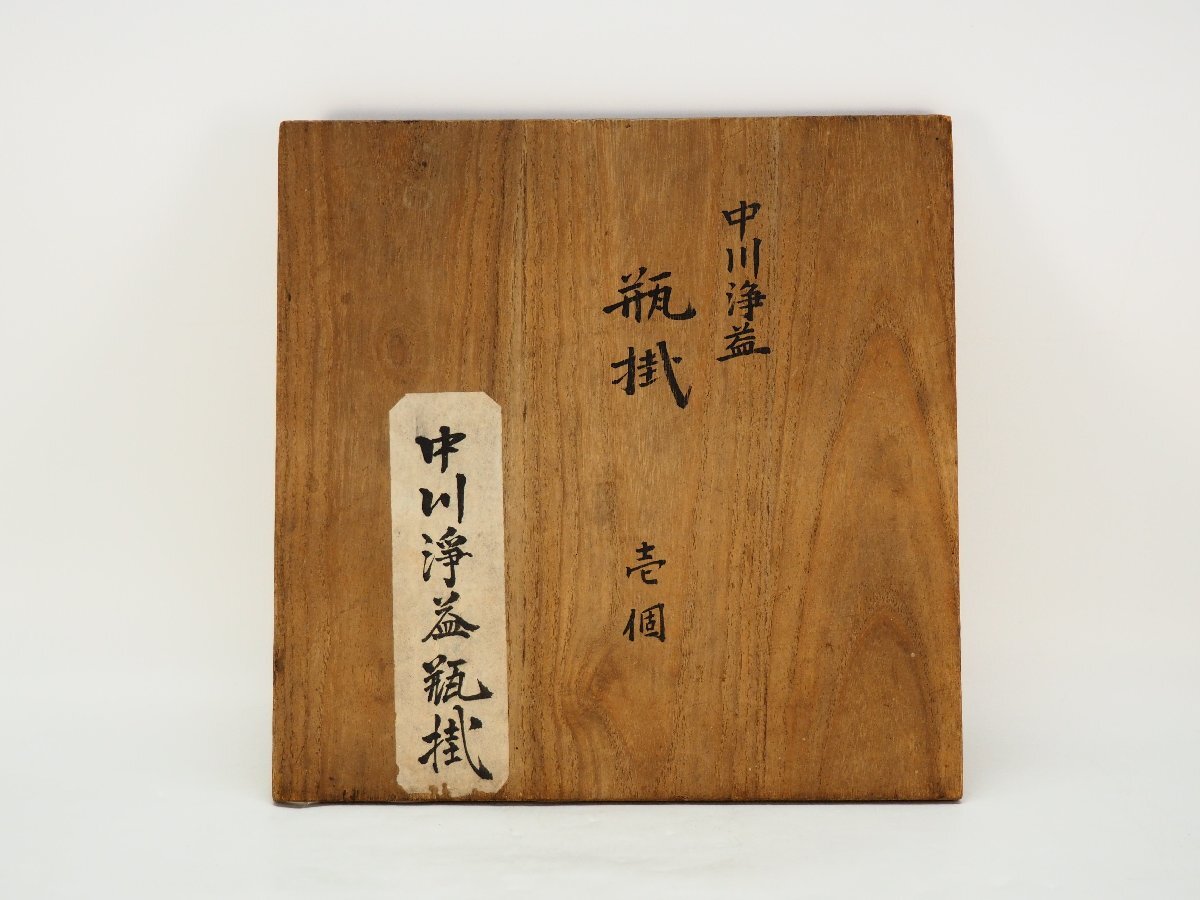 中川浄益
瓶掛
壱個
中川淨益瓶掛